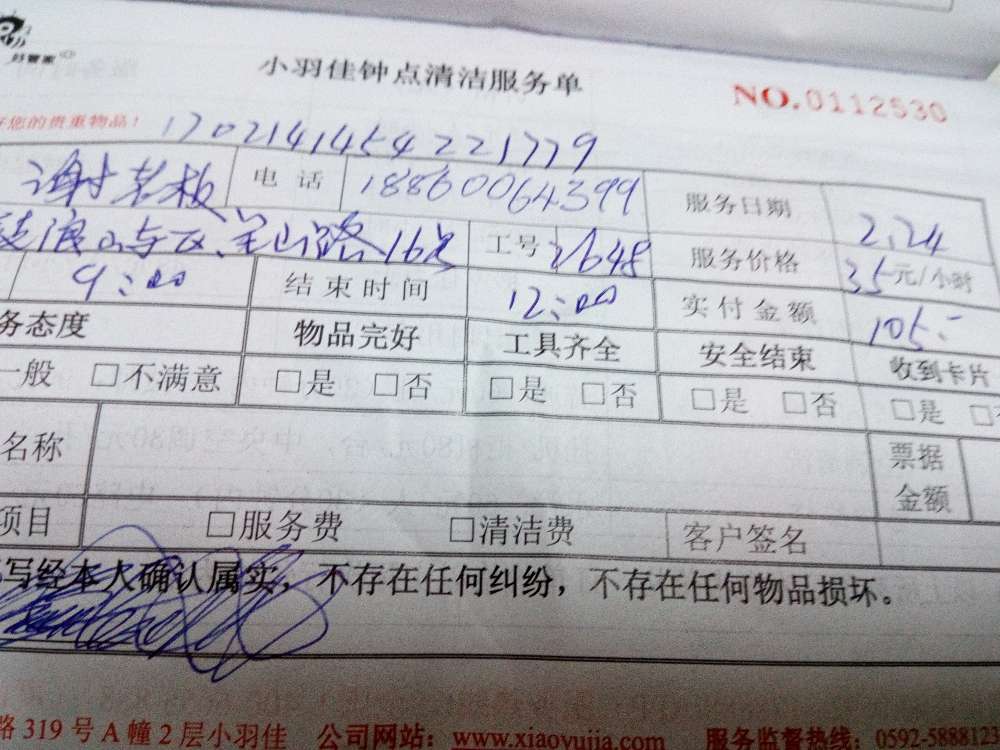 好管家
小羽佳钟点清洁服务单
NO.0112530
您的贵重物品！ 170214145422 1779
谢老板 电话 18860064399 服务日期 2.24
路16号 工号 21648 服务价格 35元/小时
9:00 结束时间 12:00 实付金额 105-
务态度 物品完好 工具齐全 安全结束 收到卡片
一般 □不满意 □是 □否 □是 □否 □是 □否 □是 □
名称 票据金额
项目 □服务费 □清洁费 客户签名
写经本人确认属实，不存在任何纠纷，不存在任何物品损坏。
路319号A幢2层小羽佳 公司网站：www.xiaoyujia.com 服务监督热线：0592-5888123